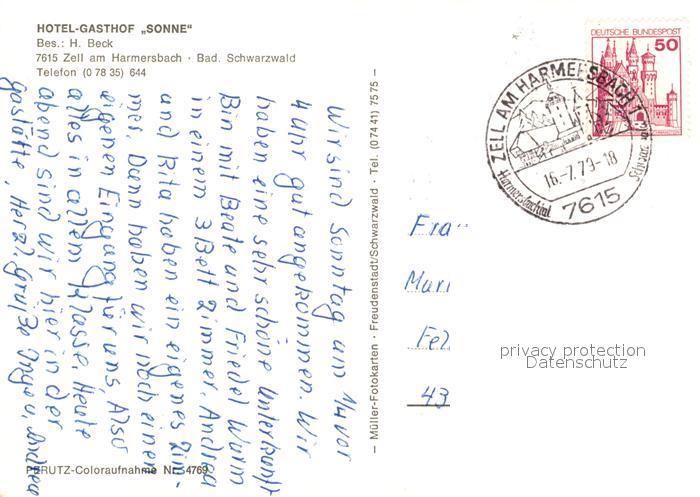 HOTEL-GASTHOF „SONNE"
Bes.: H. Beck
7615 Zell am Harmersbach · Bad. Schwarzwald
Telefon (0 78 35) 644
Wir sind Sonntag um 1/4 vor
4 Uhr gut angekommen. Wir
haben eine sehr schöne Unterkunft
Bin mit Beate und Friedel Wurm
in einem 3 Bett Zimmer, Andrea
und Rita haben ein eigenes Zim-
mer, Dann haben wir noch einen
eigenen Eingang für uns, Also
alles in allem Klasse, Heute
abend sind wir hier in der
gaststätte, Herzl. Grüße Inge u. Andrea
PERUTZ-Coloraufnahme Nr. 4769
– Müller-Fotokarten · Freudenstadt/Schwarzwald · Tel. (0 74 41) 75 75 –
DEUTSCHE BUNDESPOST
50
ZELL AM HARMERSBACH 1
16.-7.79-18
Harmersbachtal
7615
Frau
Mari
Fel
43
privacy protection
Datenschutz